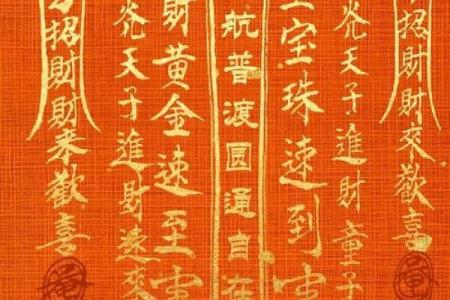 招財財來歡喜
天子進財童子
宝珠速到
航普渡圓通自在
財黃金速至
天子進財來
招財財来歡喜